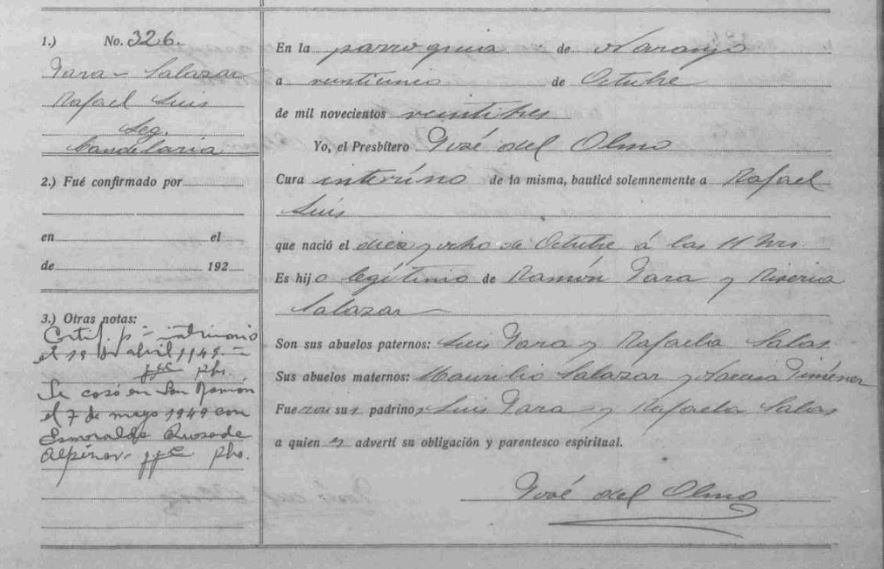 1.) No. 326.
Jara - Salazar
Rafael Luis
Leg.
Candelaria
2.) Fué confirmado por
en el
de 192
3.) Otras notas:
Certif. p - matrimonio
el 19 de abril 1949 -
pbo.
Se casó en San Ramón
el 7 de mayo 1949 con
Esmeralda Quesada
pbo.
En la parroquia de Naranjo
a veintiunio de Octubre
de mil novecientos veintitres
Yo, el Presbítero José del Olmo
Cura interino de la misma, bauticé solemnemente a Rafael
Luis
que nació el diez y ocho de Octubre á las 11 hrs.
Es hijo legítimo de Ramón Jara y
Salazar
Son sus abuelos paternos: Luis Jara y Rafaela Salas
Sus abuelos maternos: Maurilio Salazar y Jiménez
Fueron sus padrinos Luis Jara y Rafaela Salas
a quien es advertí su obligación y parentesco espiritual.
José del Olmo